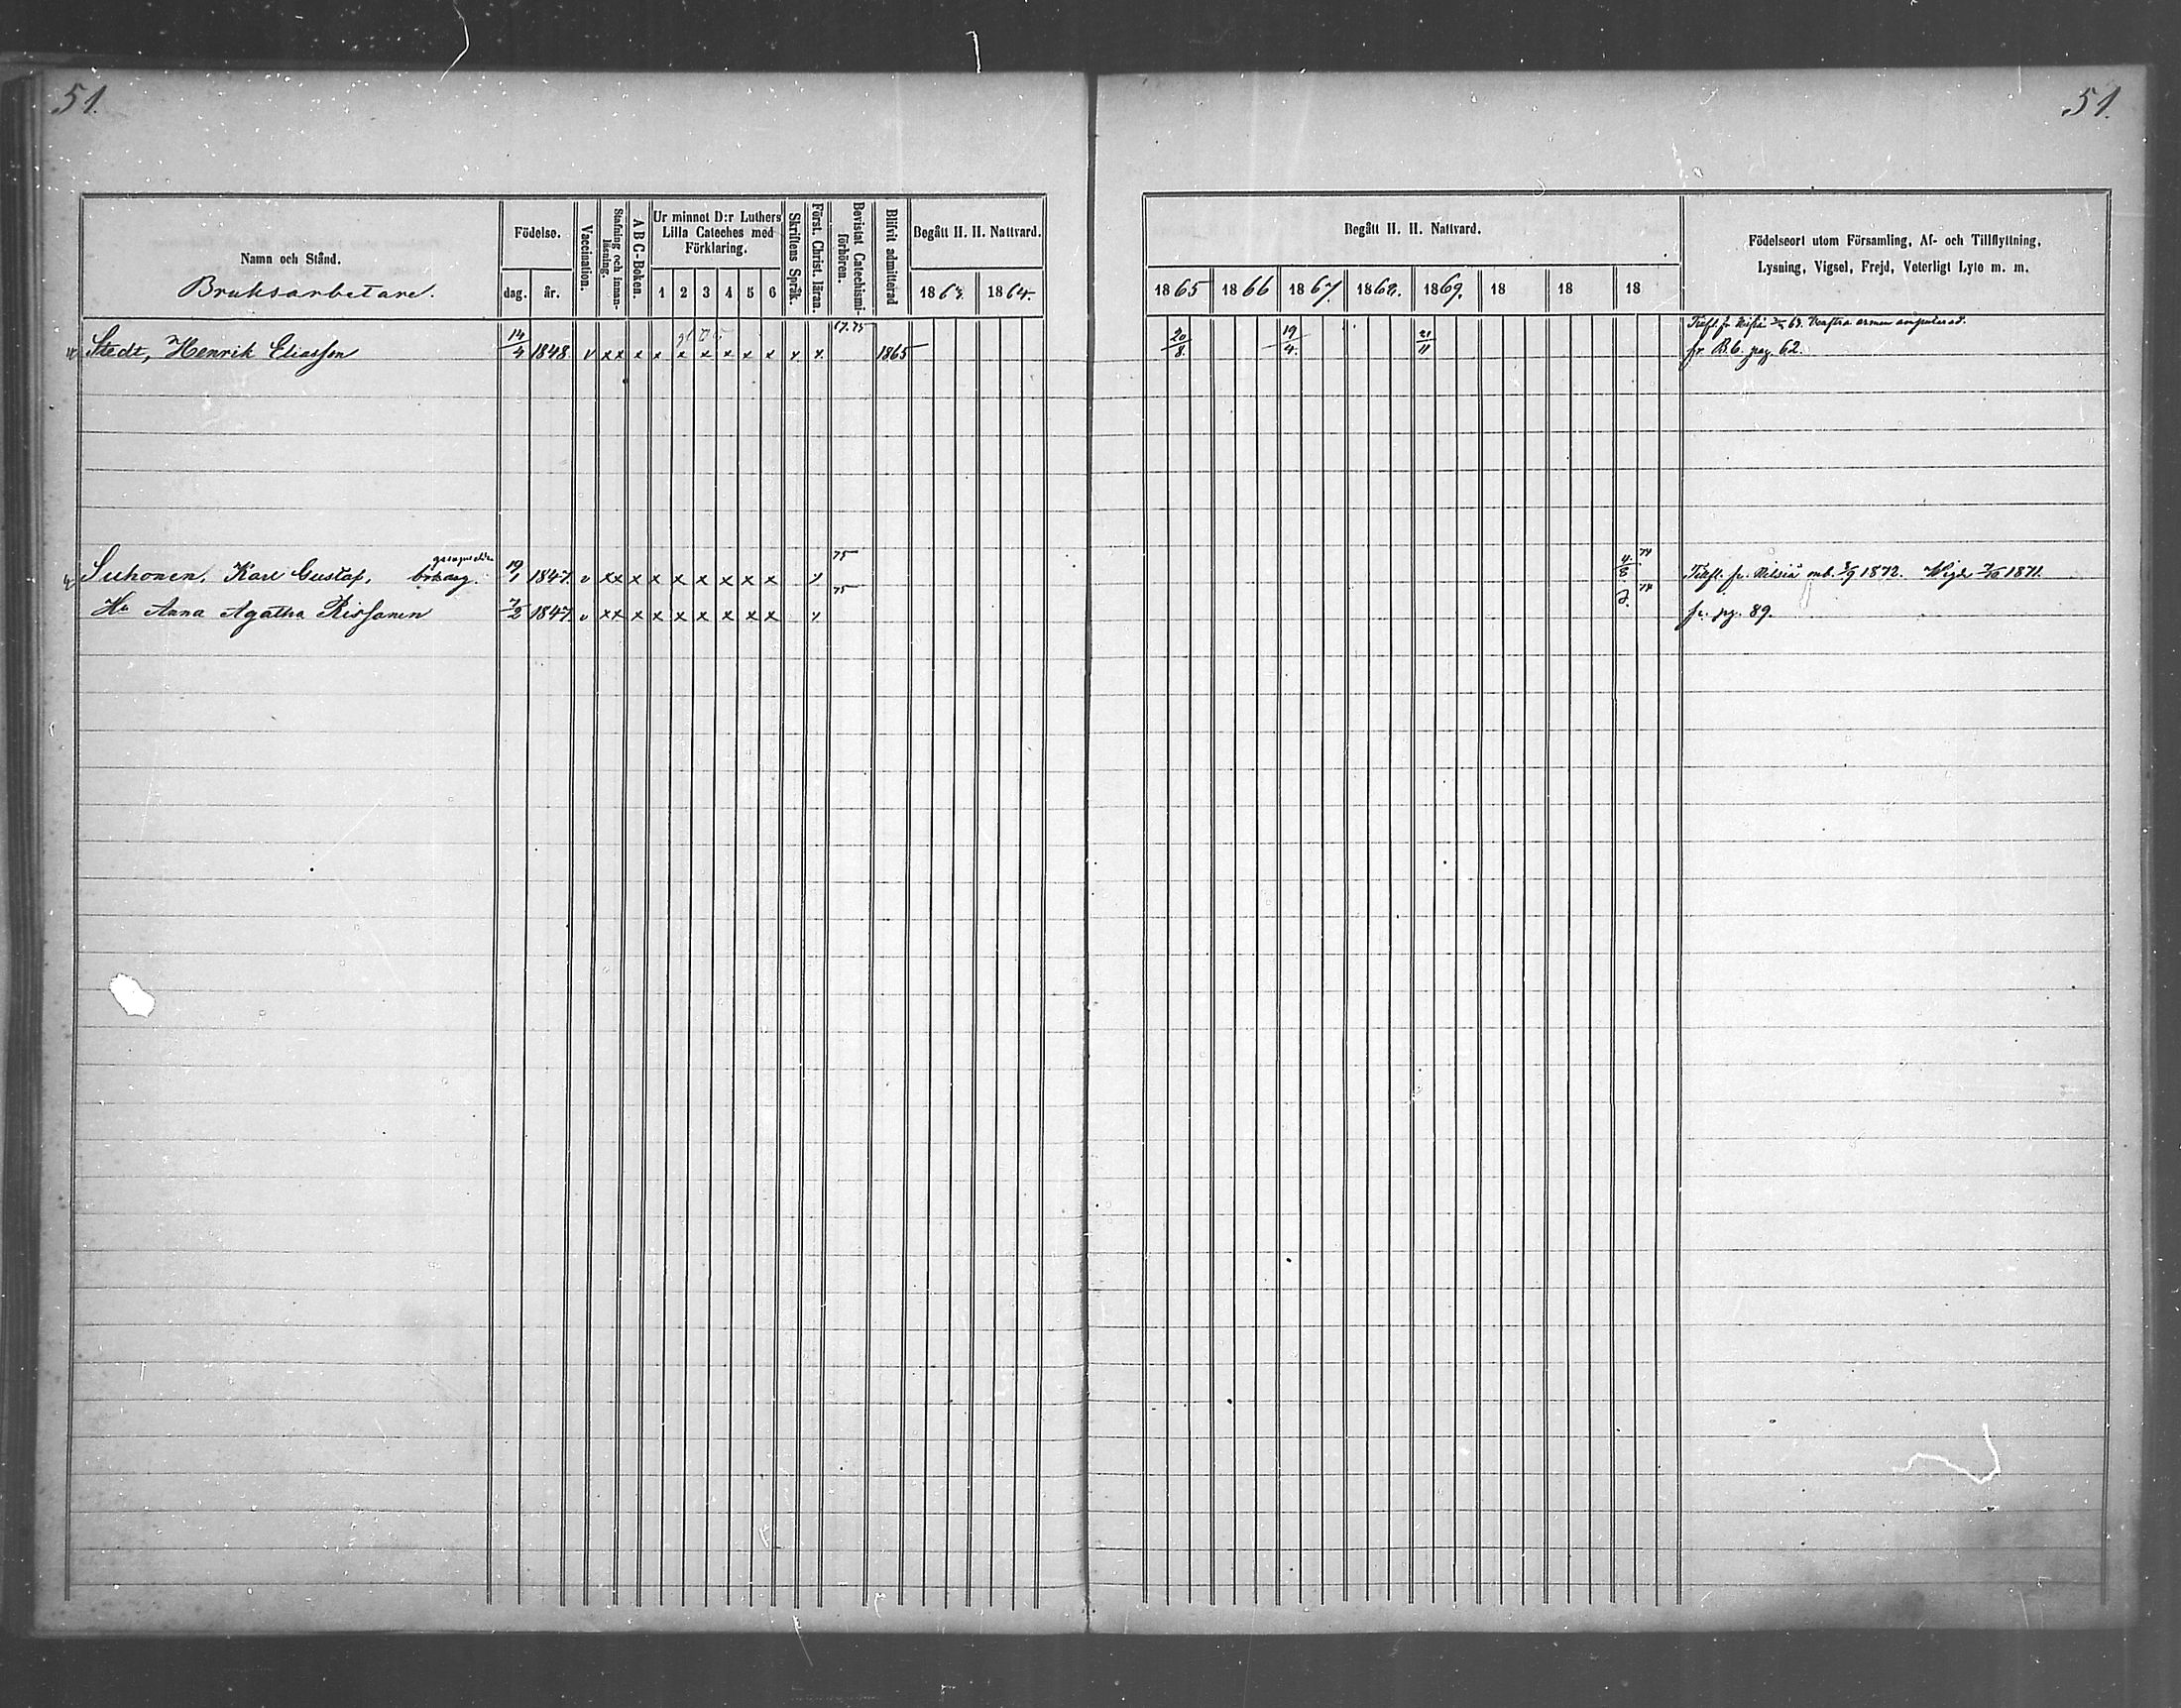 51.
51.
Namn och Stånd.
Bruksarbetare.
Födelse.
dag. år.
Vaccination.
Stafning och innan-läsning.
A B C-Boken.
Ur minnet D:r Luthers
Lilla Cateches med
Förklaring.
1 2 3 4 5 6
Skriftens Språk.
Först. Christ. läran.
Bevistat Catechismi-förhören.
Blifvit admitterad
Begått H. H. Nattvard.
1863. 1864.
Begått H. H. Nattvard.
1865 1866 1867. 1868. 1869. 18 18 18
Födelseort utom Församling, Af- och Tillflyttning,
Lysning, Vigsel, Frejd, Veterligt Lyte m. m.
67.75
Stedt, Henrik Eliasson 14/4 1848. v xx x x x x x x x x x 1865 20/8. 19/4. 21/11 fr B.b. pag. 62.
Venstra armen amputerad.
75 74
Suhonen, Karl Gustaf, 19/1 1847. v xx x x x x x x x x 4/8 Tillfl. fr. Nilsiä enl. 1872. Wigde 1871.
75 74
Hu Anna Agatha Rissanen 7/2 1847. v xx x x x x x x x x d. fr. pg. 89.